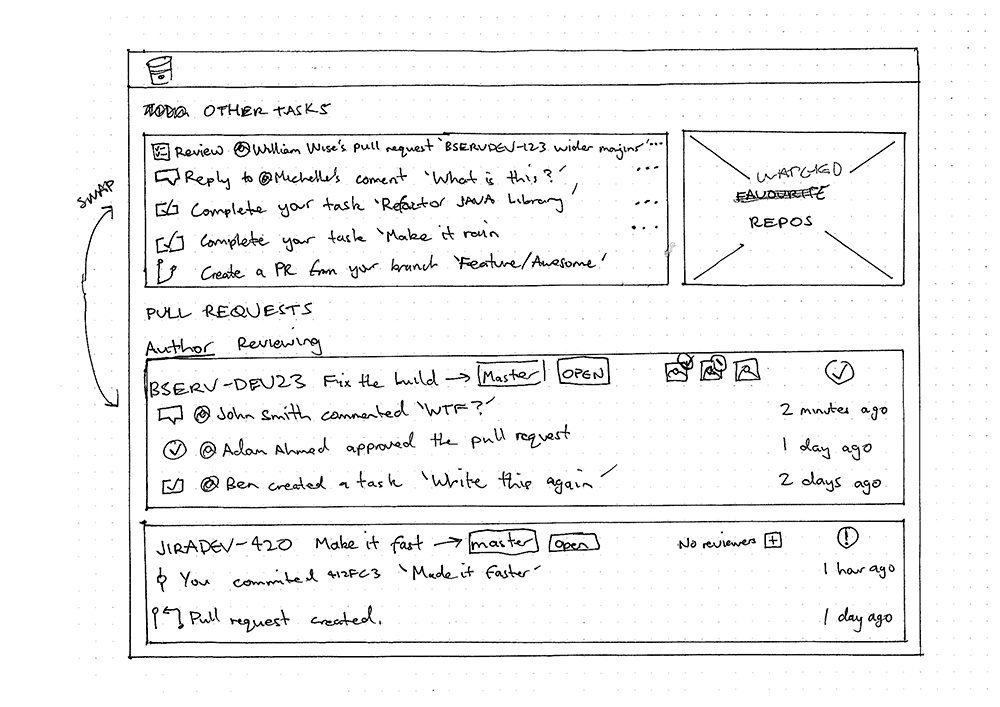 TODO OTHER TASKS
Review @William Wise's pull request 'BSERVDEV-123 wider majins' ...
Reply to @Michelle's coment 'What is this?' ...
Complete your task 'Refactor JAVA Library' ...
Complete your task 'Make it rain ...
Create a PR from your branch 'Feature/Awesome'
WATCHED
FAVOURITE
REPOS
SWAP
PULL REQUESTS
Author Reviewing
BSERV-DEV23 Fix the build → Master OPEN
John Smith commented 'WTF?' 2 minutes ago
Adam Ahmed approved the pull request 1 day ago
Ben created a task 'Write this again' 2 days ago
JIRADEV-420 Make it fast → master open No reviewers +
You commited 412FC3 'Made it Faster' 1 hour ago
Pull request created. 1 day ago